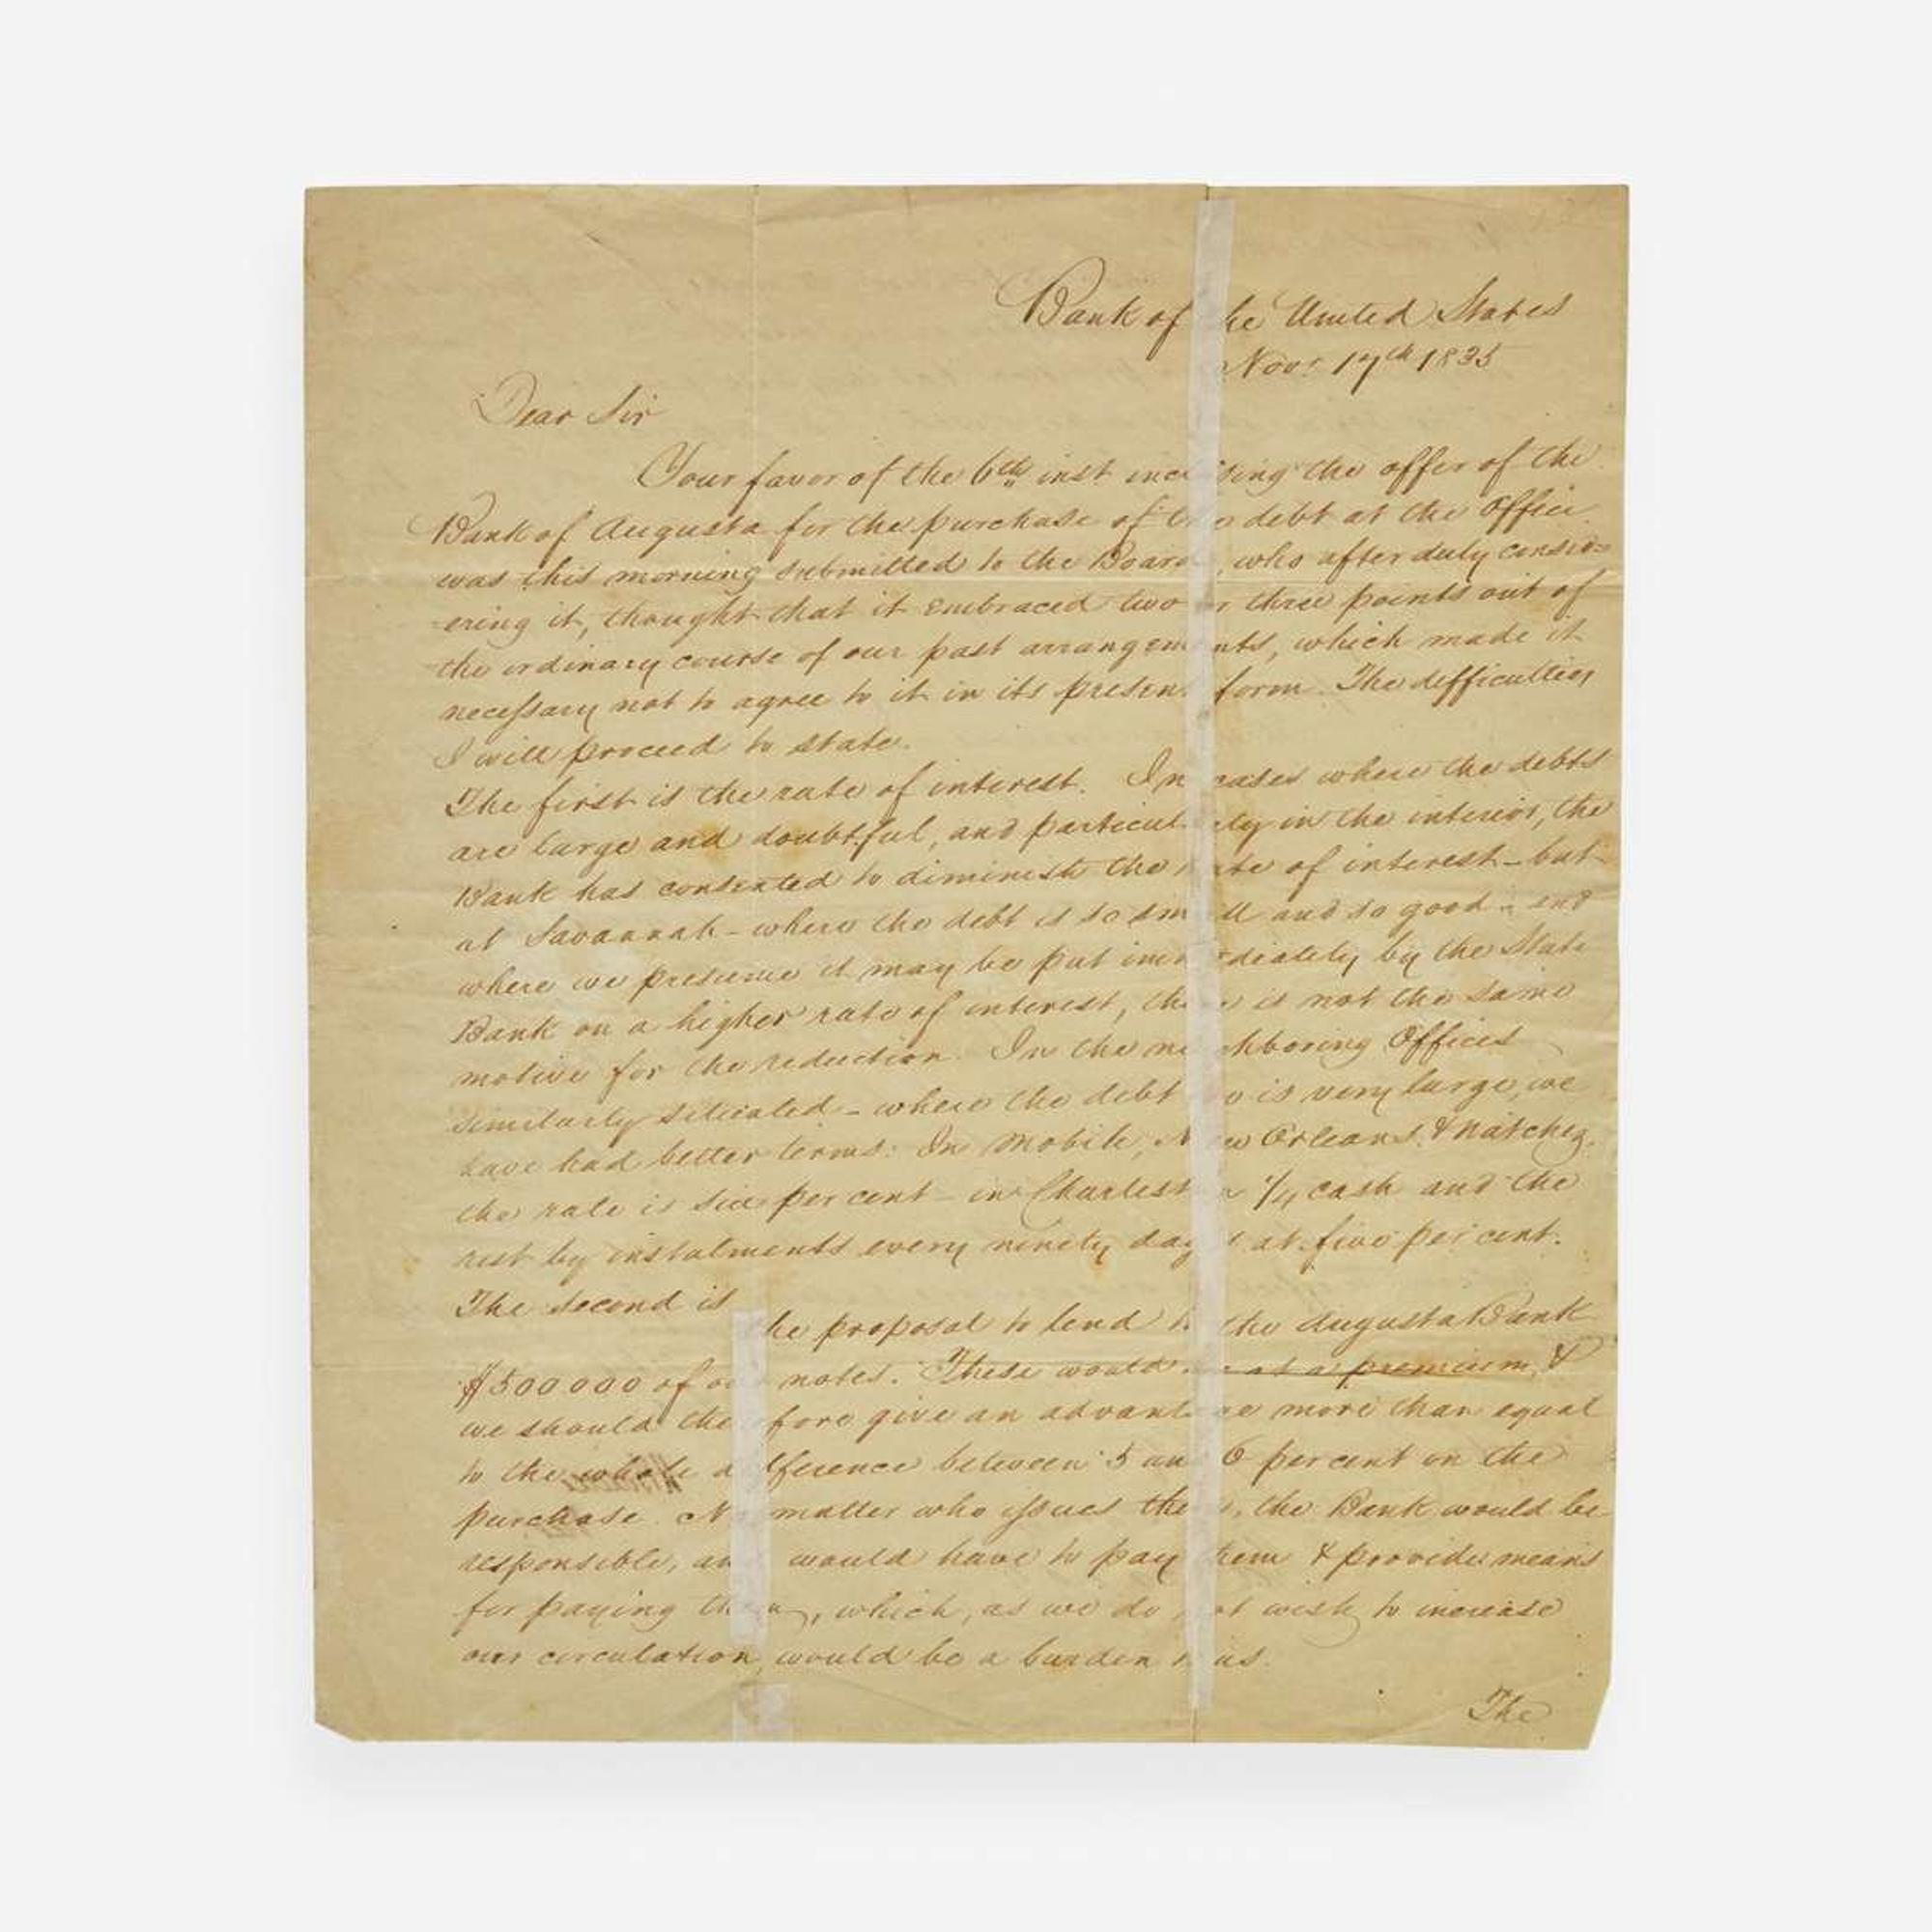 Bank of the United States
Nov. 17th 1835
Dear Sir
Your favor of the 6th inst inclosing the offer of the
Bank of Augusta for the purchase of the debt at the Office
was this morning submitted to the Board, who after duly consid=
=ering it, thought that it embraced two or three points out of
the ordinary course of our past arrangements, which made it
necessary not to agree to it in its present form. The difficulties
I will proceed to state.
The first is the rate of interest. In cases where the debts
are large and doubtful, and particularly in the interior, the
Bank has consented to diminish the rate of interest - but
at Savannah - where the debt is so small and so good - and
where we presume it may be put immediately by the State
Bank on a higher rate of interest, there is not the same
motive for the reduction. In the neighboring Offices
similarly situated - where the debt is very large, we
have had better terms: In Mobile, New Orleans, & Natchez
the rate is six per cent - in Charleston 1/4 cash and the
rest by instalments every ninety days at five per cent.
The second is the proposal to lend to the Augusta Bank
$500000 of our notes. These would be at a premium, &
we should therefore give an advantage more than equal
to the whole difference between 5 and 6 per cent on the
purchase. No matter who issues them, the Bank would be
responsible, and would have to pay them & provide means
for paying them, which, as we do not wish to increase
our circulation would be a burden to us.
The